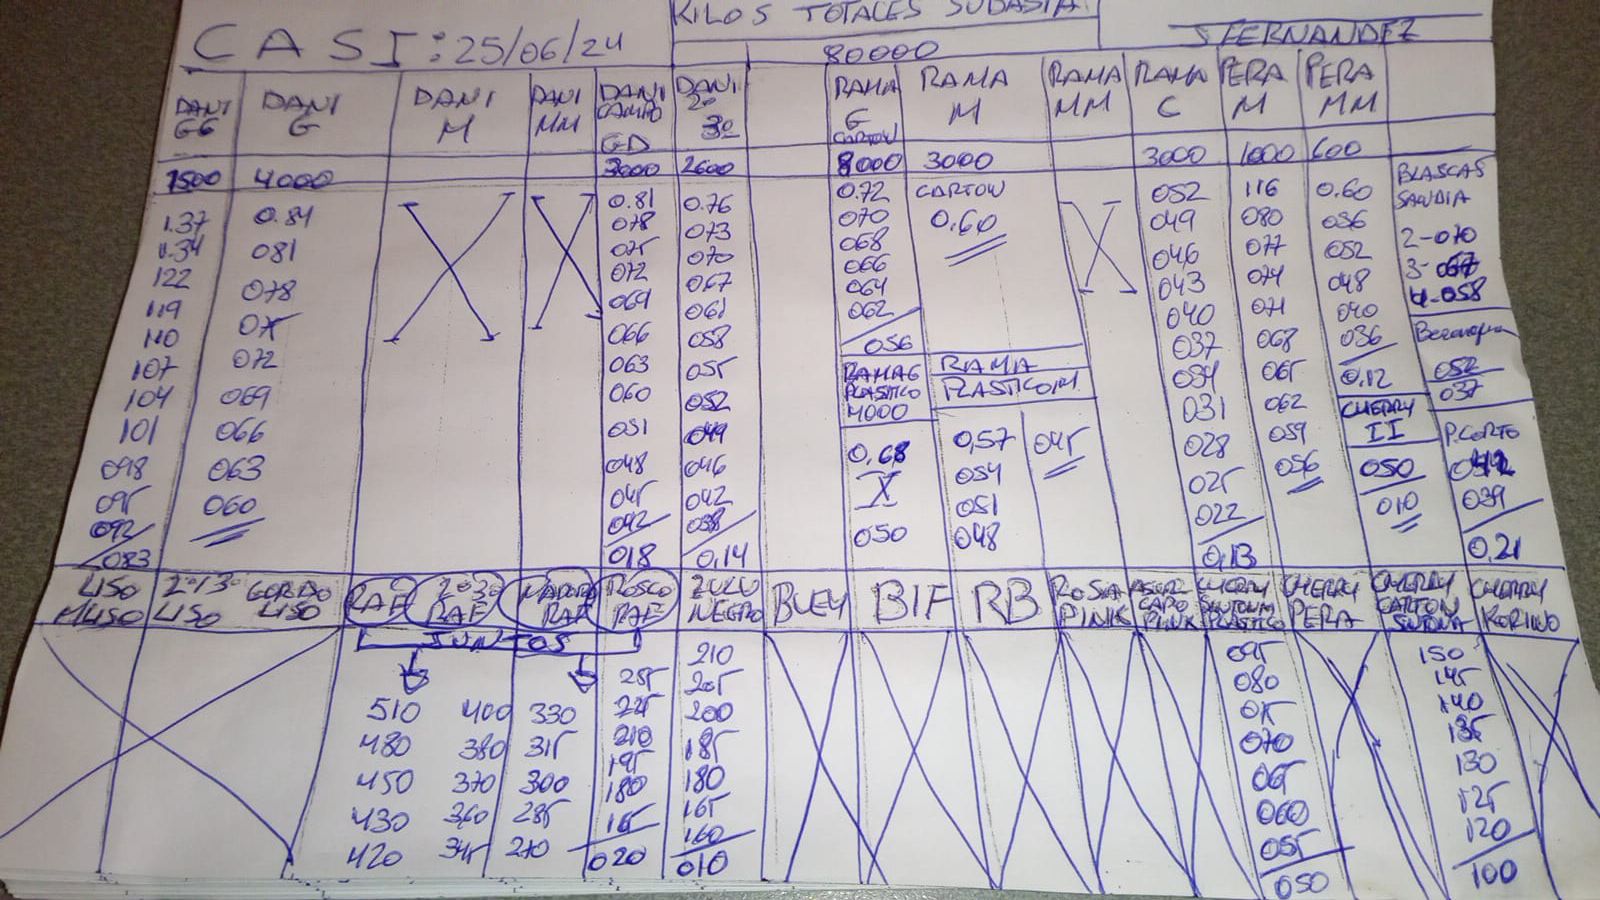 KILOS TOTALES SUBASTA
CASI: 25/06/24
80000
S FERNANDEZ
DANI GG
DANI G
DANI M
DANI MM
DANI CAMPO GD
DANI 2º 3º
RAMA G CARTON
RAMA M
RAMA MM
RAMA C
PERA M
PERA MM
1500 4000 3000 2600 8000 3000 3000 1000 600
1.37
1.34
122
119
110
107
104
101
098
095
092
083
0.84
081
078
075
072
069
066
063
060
0.81
078
075
072
069
066
063
060
051
048
045
042
018
0.76
073
070
067
061
058
055
052
049
046
042
038
0,14
0.72
070
068
066
064
062
056
RAMA G
PLASTICO
4000
0,68
X
050
CARTON
0,60
RAMA
PLASTICO M
0,57
054
051
048
045
052
049
046
043
040
037
034
031
028
025
022
0,13
116
080
077
074
071
068
065
062
059
056
0.60
056
052
048
040
036
0,12
CHERRY
II
050
010
BLASCAS
SANDIA
2-070
3-067
4-058
Berenjena
052
037
P.CORTO
042
039
0,21
LISO M LISO
2º 3º LISO
GORDO LISO
RAF
2º 3º RAF
MADURO RAF
ROSCO RAF
ZULU NEGRO
BUEY
BIF
RB
ROSA PINK
ASURC CAPO PINK
CHERRY SINTONIA PLASTICO
CHERRY PERA
CHERRY CARTON SINTONIA
CHERRY KORINO
JUNTOS
510 400 330
480 380 315
450 370 300
430 360 285
420 345 270
255
225
210
195
180
165
020
210
205
200
185
180
165
160
010
095
080
075
070
065
060
055
050
150
145
140
135
130
125
120
100